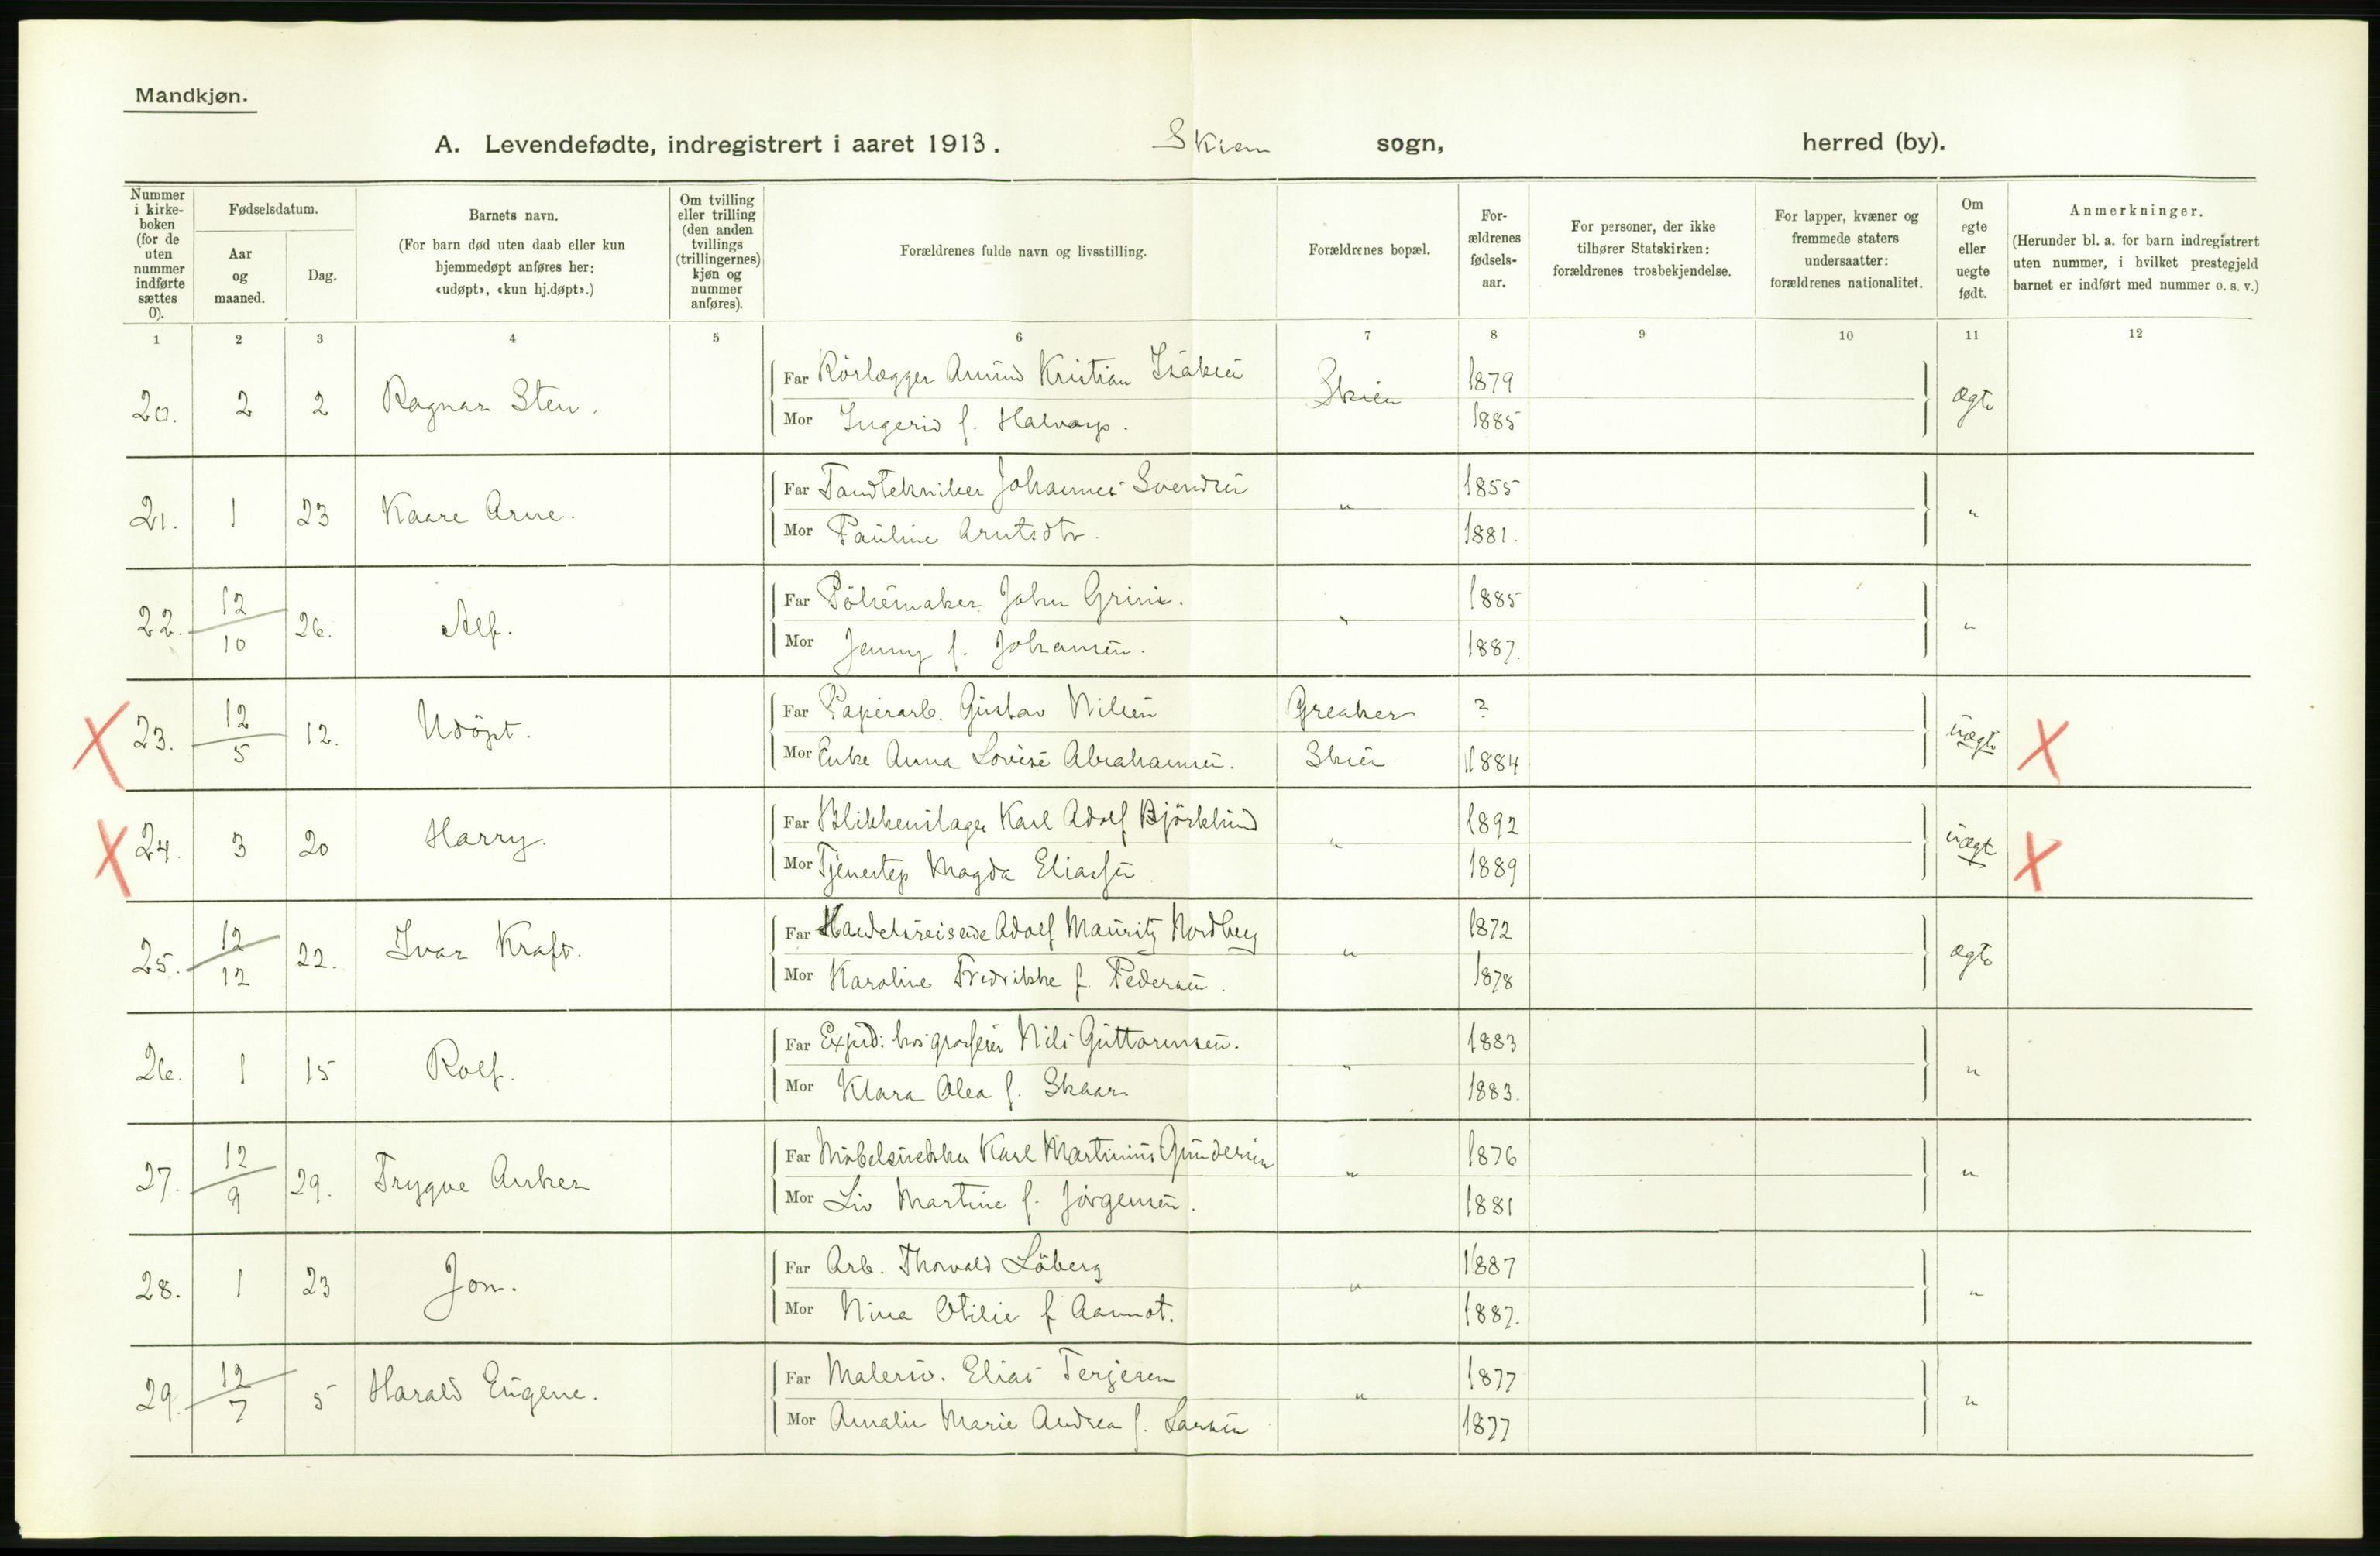 Mandkjøn.
A. Levendefødte, indregistrert i aaret 1913. Skien sogn, herred (by).
Nummer i kirke-boken (for de uten nummer indførte sættes 0).
Fødselsdatum.
Aar og maaned.
Dag.
Barnets navn.
(For barn død uten daab eller kun hjemmedøpt anføres her: «udøpt», «kun hj.døpt».)
Om tvilling eller trilling (den anden tvillings (trillingernes) kjøn og nummer anføres).
Forældrenes fulde navn og livsstilling.
Forældrenes bopæl.
For-ældrenes fødsels-aar.
For personer, der ikke tilhører Statskirken: forældrenes trosbekjendelse.
For lapper, kvæner og fremmede staters undersaatter: forældrenes nationalitet.
Om egte eller uegte født.
Anmerkninger.
(Herunder bl. a. for barn indregistrert uten nummer, i hvilket prestegjeld barnet er indført med nummer o. s. v.)
1 2 3 4 5 6 7 8 9 10 11 12
20. 2 2 Ragnar Sten. Far Rörlægger Amund Kristian Isaksen Skien 1879 ægte
Mor Ingerid f. Halvorp. 1885
21. 1 23 Kaare Arne. Far Tandtekniker Johannes Svendsen " 1855 "
Mor Pauline Arntsdtr. 1881.
22. 12/10 26. Alf. Far Pölsemaker John Grini. " 1885 "
Mor Jenny f. Johansen. 1887.
X 23. 12/5 12. Udöpt. Far Papirarb. Gustav Nilsen Greaker ? uægte X
Mor Enke Anna Lovise Abrahamsen. Skien 1884
X 24. 3 20 Harry. Far Blikkenslager Karl Adolf Björklund " 1892 uægte X
Mor Tjenestep Magda Eliassen 1889
25. 12/12 22. Ivar Kraft. Far Handelsreisende Adolf Mauritz Nordberg " 1872 ægte
Mor Karoline Fredrikke f. Pedersen. 1878
26. 1 15 Rolf. Far Exped: hos grosserer Nils Guttormsen. " 1883 "
Mor Klara Olea f. Skaar. 1883.
27. 12/9 29. Trygve Anker Far Möbelsnekker Karl Martinius Gundersen " 1876 "
Mor Liv Martine f. Jörgensen. 1881
28. 1 23 Jon. Far Arb. Thorvald Löberg " 1887 "
Mor Nina Otilie f Aamot. 1887.
29. 12/7 5 Harald Eugene. Far Malersv. Elias Terjesen " 1877 "
Mor Amalie Marie Andrea f. Larsen 1877